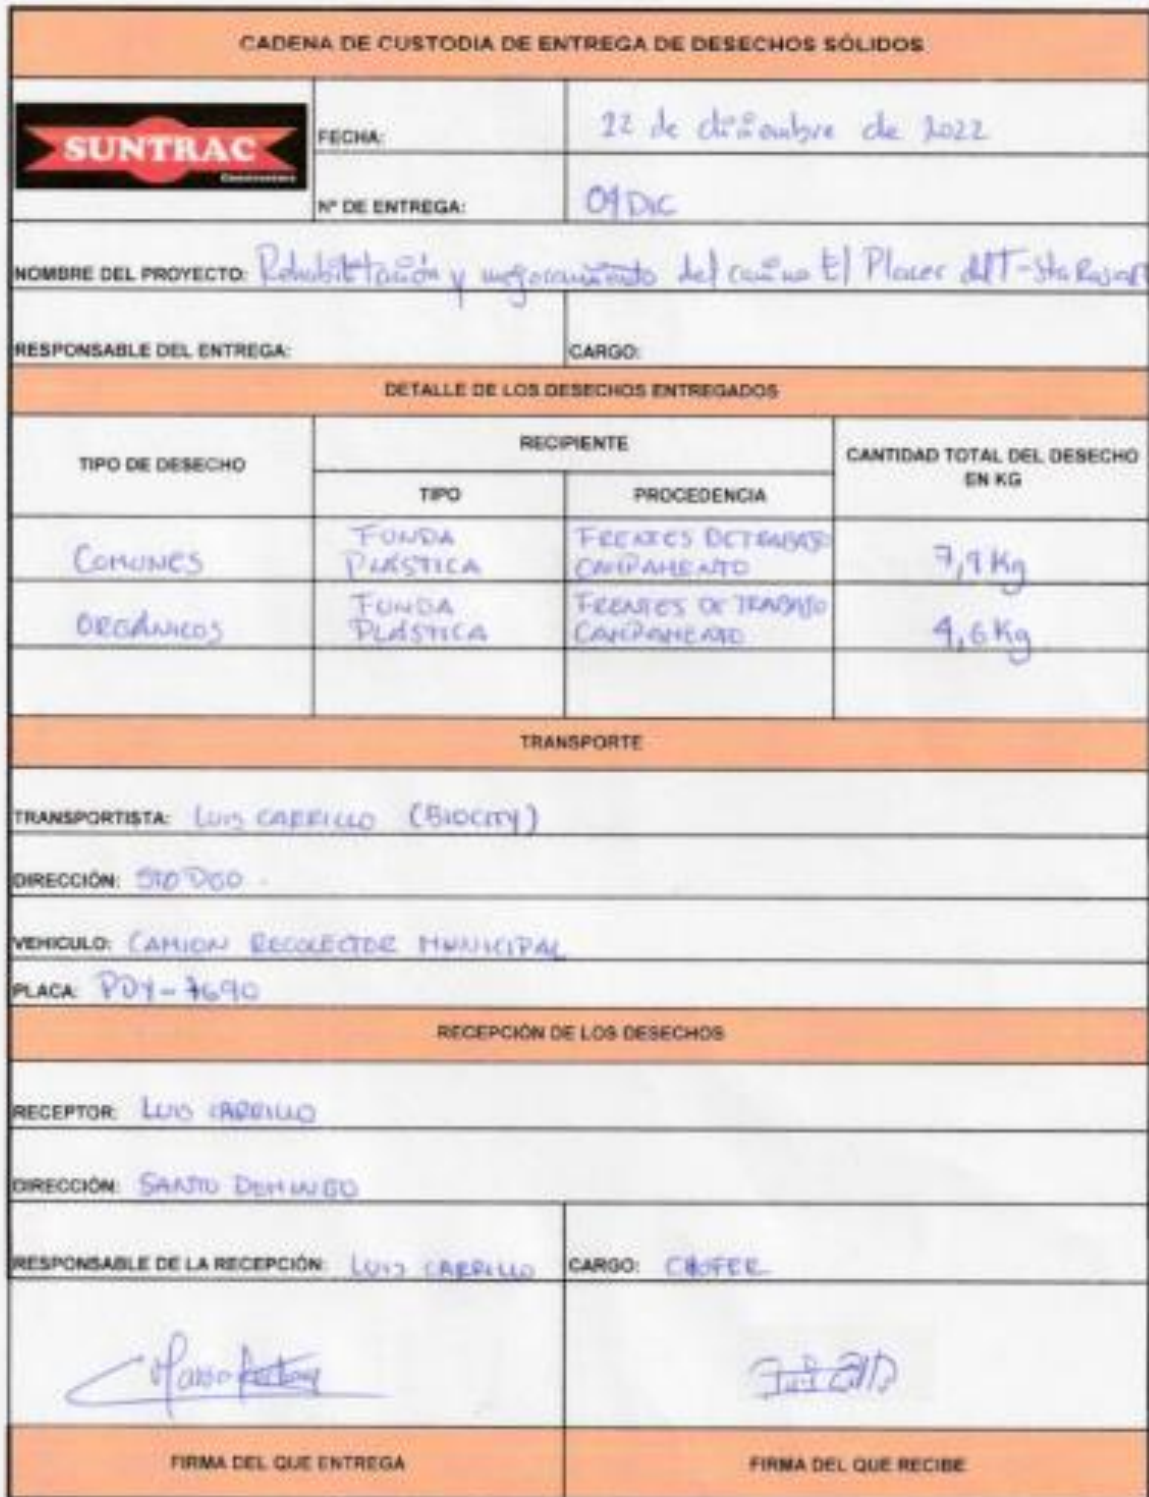 CADENA DE CUSTODIA DE ENTREGA DE DESECHOS SÓLIDOS
SUNTRAC
Constructora
FECHA: 22 de diciembre de 2022
N° DE ENTREGA: 09 DIC
NOMBRE DEL PROYECTO: Rehabilitación y mejoramiento del camino El Placer del T-Sta Rosa
RESPONSABLE DEL ENTREGA: CARGO:
DETALLE DE LOS DESECHOS ENTREGADOS
TIPO DE DESECHO RECIPIENTE CANTIDAD TOTAL DEL DESECHO EN KG
TIPO PROCEDENCIA
COMUNES FUNDA PLÁSTICA FRENTES DE TRABAJO CAMPAMENTO 7,9 Kg
ORGÁNICOS FUNDA PLÁSTICA FRENTES DE TRABAJO CAMPAMENTO 4,6 Kg
TRANSPORTE
TRANSPORTISTA: LUIS CARRILLO (BIOCITY)
DIRECCIÓN: STO DGO.
VEHICULO: CAMION RECOLECTOR MUNICIPAL
PLACA: PDY-7690
RECEPCIÓN DE LOS DESECHOS
RECEPTOR: LUIS CARRILLO
DIRECCIÓN: SANTO DOMINGO
RESPONSABLE DE LA RECEPCIÓN: LUIS CARRILLO CARGO: CHOFER
FIRMA DEL QUE ENTREGA FIRMA DEL QUE RECIBE